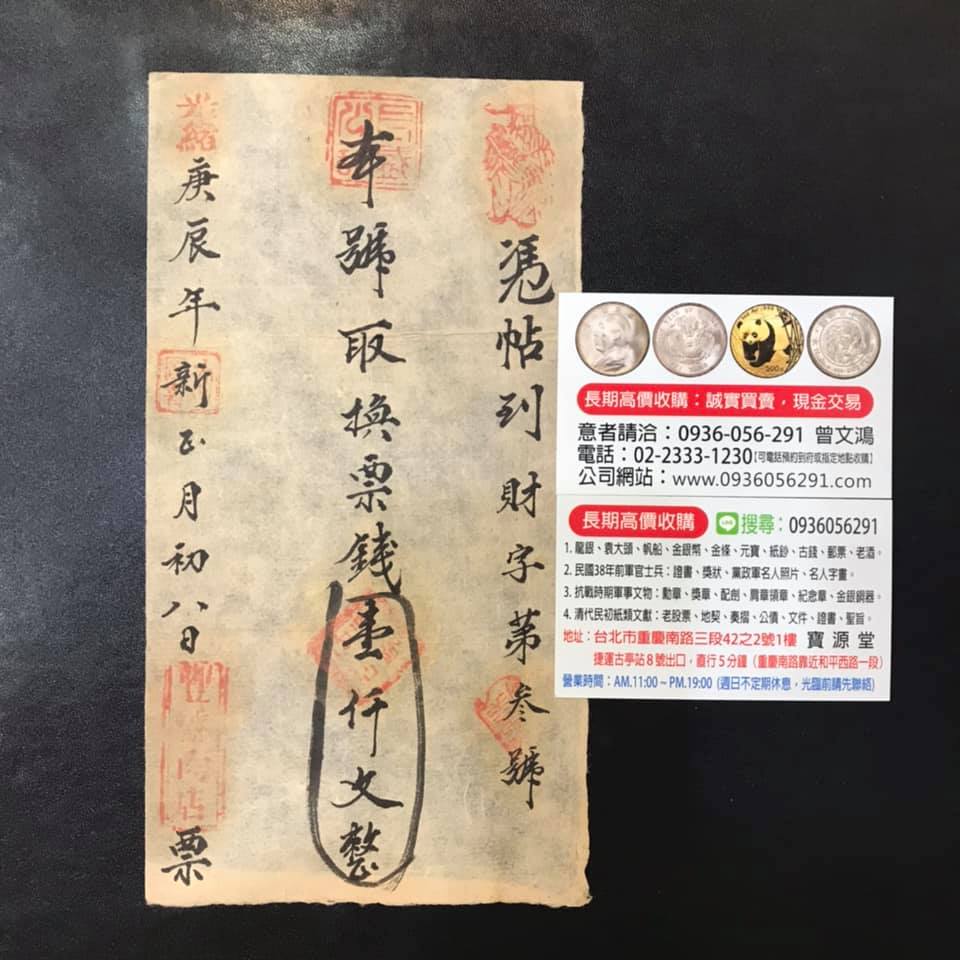 憑帖到財字第叁號
本號取換票錢壹仟文整
光緒庚辰年新正月初八日
票
長期高價收購：誠實買賣，現金交易
意者請洽：0936-056-291 曾文鴻
電話：02-2333-1230【可電話預約到府或指定地點收購】
公司網站：www.0936056291.com
長期高價收購 LINE 搜尋：0936056291
1. 龍銀、袁大頭、帆船、金銀幣、金條、元寶、紙鈔、古錢、郵票、老酒。
2. 民國38年前軍官士兵：證書、獎狀、黨政軍名人照片、名人字畫。
3. 抗戰時期軍事文物：勳章、獎章、配劍、肩章領章、紀念章、金銀銅器。
4. 清代民初紙類文獻：老股票、地契、奏摺、公債、文件、證書、聖旨。
地址：台北市重慶南路三段42之2號1樓 寶源堂
捷運古亭站8號出口，直行5分鐘（重慶南路靠近和平西路一段）
營業時間：AM.11:00～PM.19:00 (週日不定期休息，光臨前請先聯絡)